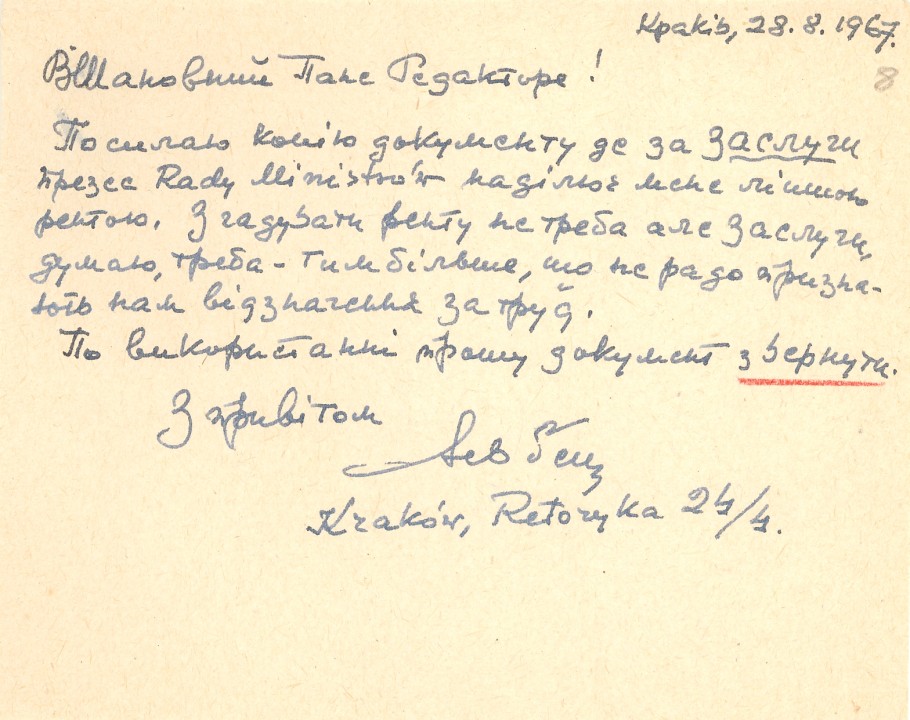 Краків, 28.8.1967.
8
ВШановний Пане Редакторе!
Посилаю копію документу де за Заслуги
презес Rady Ministrów наділює мене ліпшою
рентою. Згадувати ренту не треба але Заслуги,
думаю, треба - тим більше, що не радо призна-
ють нам відзначення за труд.
По використанні прошу документ звернути.
З привітом
Лев Ґец
Kraków, Retoryka 24/4.